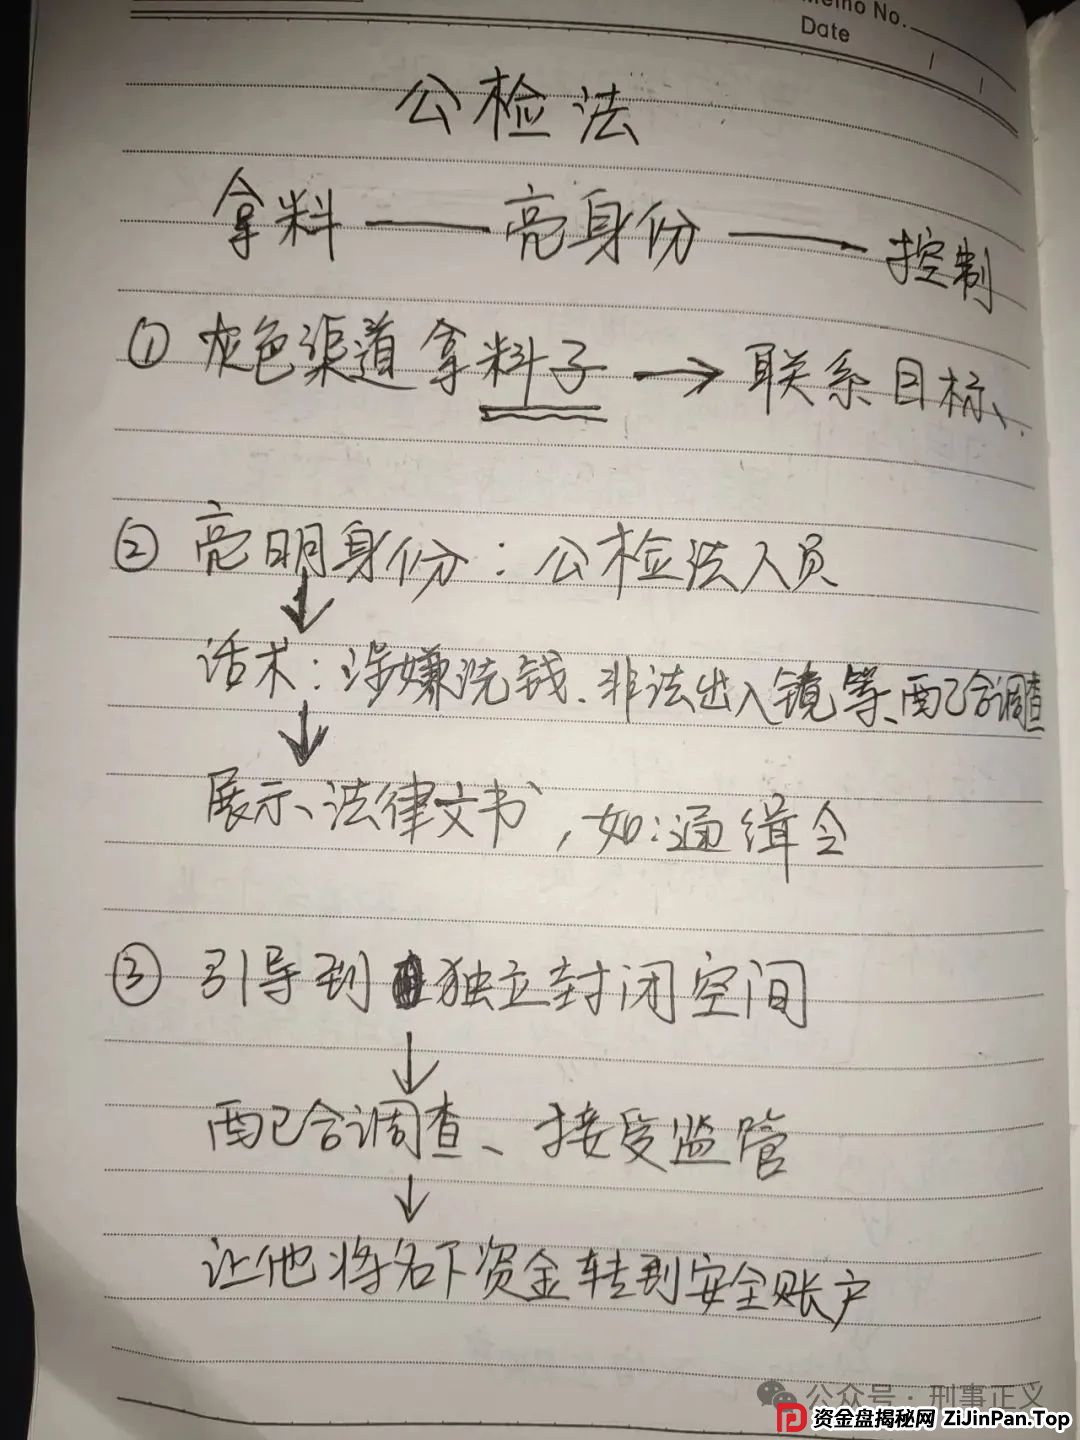 Memo No.
Date
公检法
拿料——亮身份——控制
① 灰色渠道拿料子→联系目标、
② 亮明身份：公检法人员
↓
话术：涉嫌洗钱、非法出入镜等、配合调查
↓
展示、法律文书，如：通缉令
③ 引导到独立封闭空间
↓
配合调查、接受监管
↓
让他将名下资金转到安全账户
公众号·刑事正义
资金盘揭秘网 ZiJinPan.Top